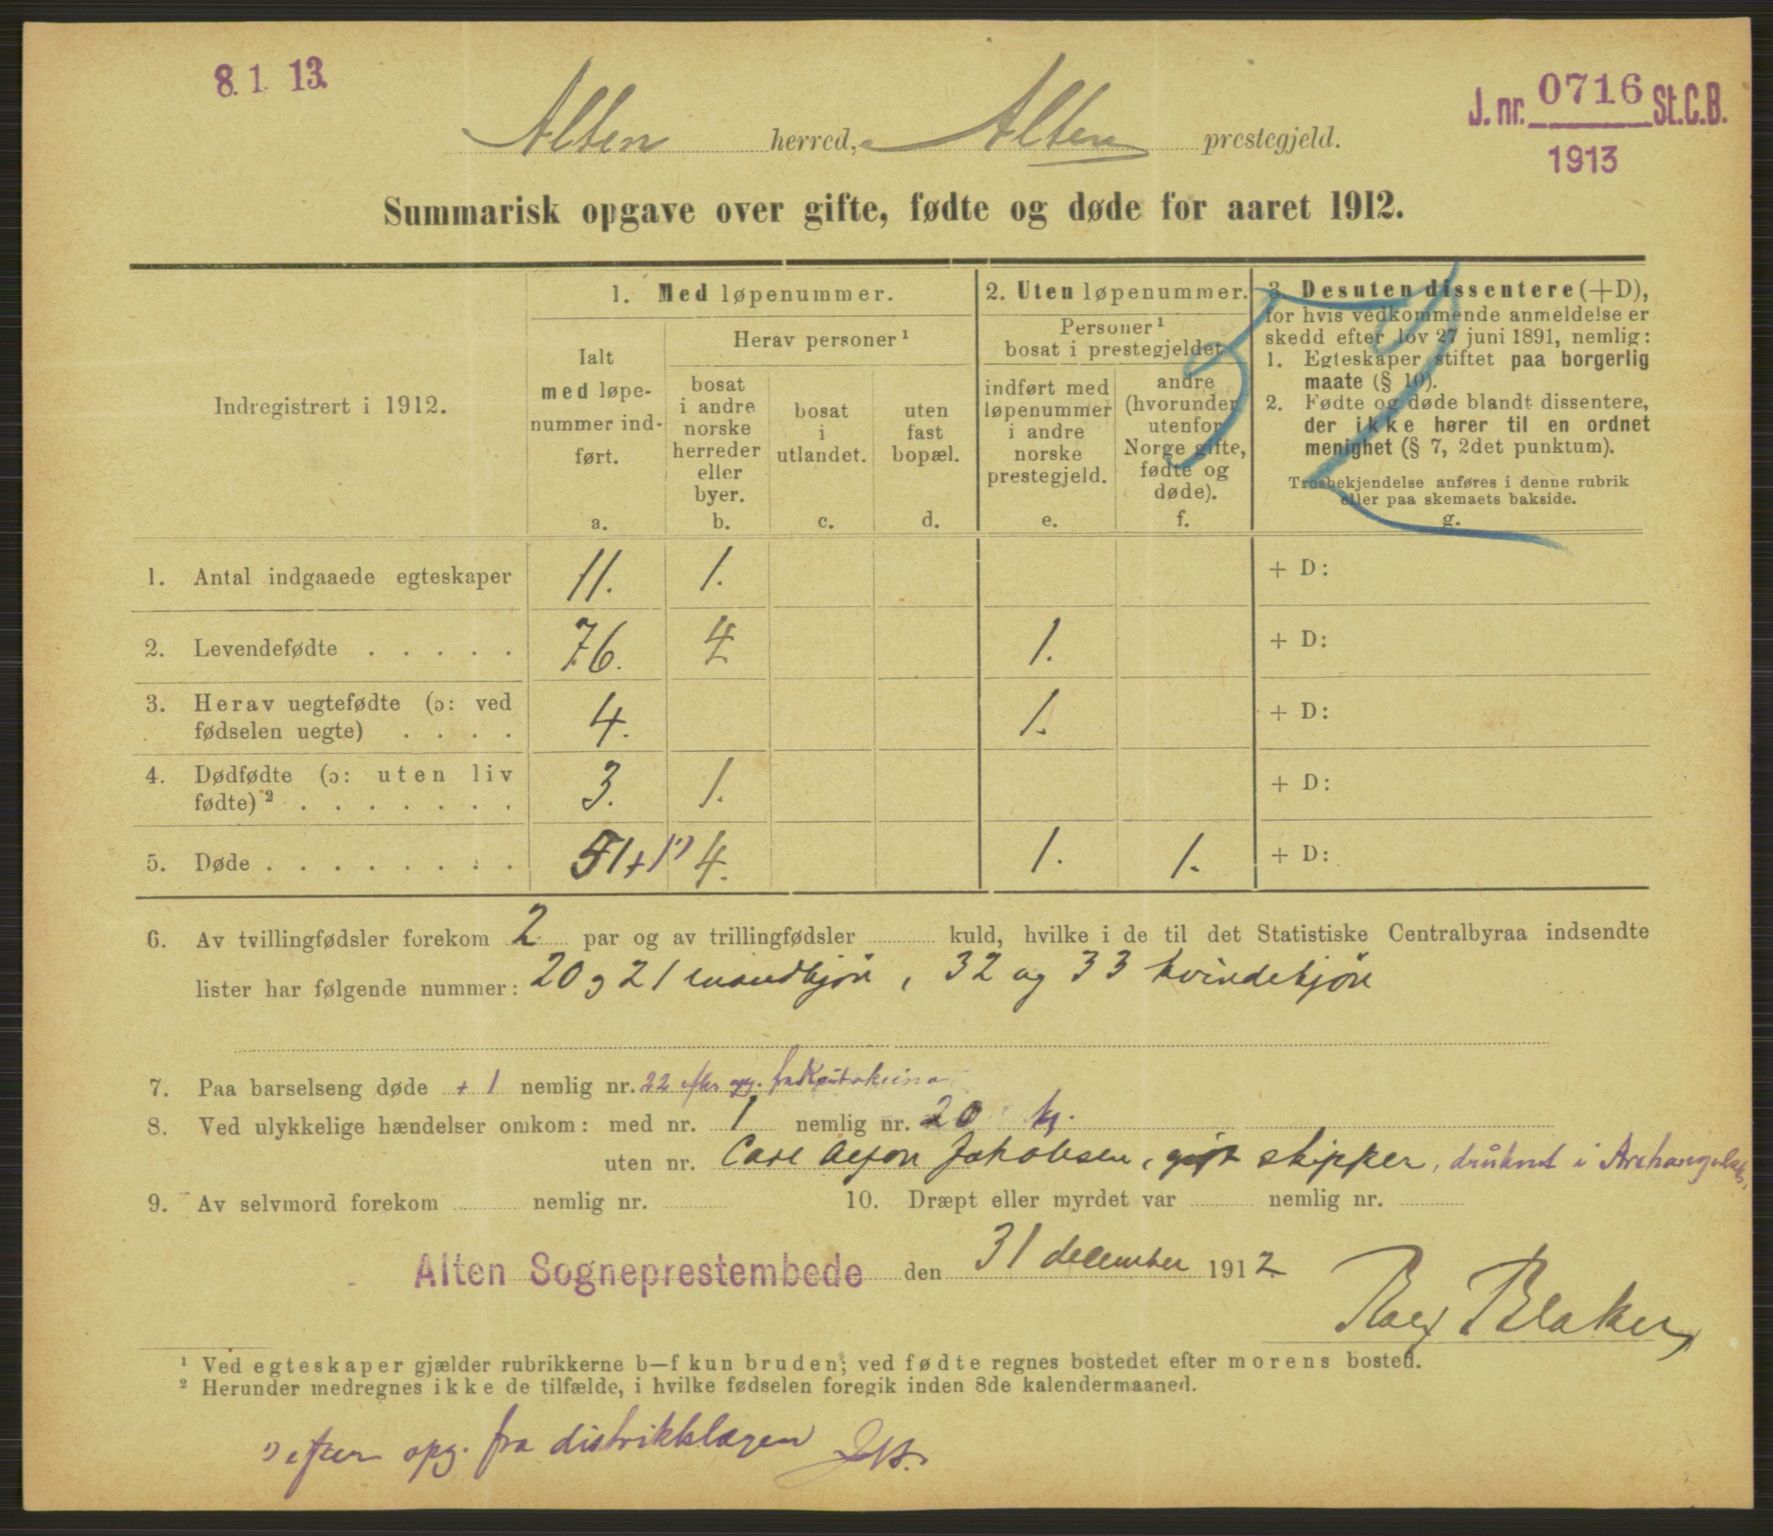 8. 1. 13.
J. nr. 0716 St.C.B.
1913
Alten herred, Alten prestegjeld.
Summarisk opgave over gifte, fødte og døde for aaret 1912.
Indregistrert i 1912.
1. Med løpenummer.
Ialt
med løpe-
nummer ind-
ført.
a.
Herav personer ¹
bosat
i andre
norske
herreder
eller
byer.
b.
bosat
i
utlandet.
c.
uten
fast
bopæl.
d.
2. Uten løpenummer.
Personer ¹
bosat i prestegjeldet
indført med
løpenummer
i andre
norske
prestegjeld.
e.
andre
(hvorunder
utenfor
Norge gifte,
fødte og
døde).
f.
3. Desuten dissentere (+D),
for hvis vedkommende anmeldelse er
skedd efter lov 27 juni 1891, nemlig:
1. Egteskaper stiftet paa borgerlig
maate (§ 10).
2. Fødte og døde blandt dissentere,
der ikke hører til en ordnet
menighet (§ 7, 2det punktum).
Trosbekjendelse anføres i denne rubrik
eller paa skemaets bakside.
g.
1. Antal indgaaede egteskaper 11. 1. + D:
2. Levendefødte . . . . . 76. 4 1. + D:
3. Herav uegtefødte (ɔ: ved
fødselen uegte) . . . . 4. 1. + D:
4. Dødfødte (ɔ: uten liv
fødte) ² . . . . . . . 3. 1. + D:
5. Døde . . . . . . . . 51+1⁾ 4. 1. 1. + D:
6. Av tvillingfødsler forekom 2 par og av trillingfødsler kuld, hvilke i de til det Statistiske Centralbyraa indsendte
lister har følgende nummer: 20 og 21 mandkjøn, 32 og 33 kvindekjøn
7. Paa barselseng døde + 1 nemlig nr. 22 efter opg. fra Kautokeino
8. Ved ulykkelige hændelser omkom: med nr. 1 nemlig nr. 20 k.
uten nr. Carl Jakobsen, gift skipper, druknet i Archangelsk.
9. Av selvmord forekom nemlig nr. 10. Dræpt eller myrdet var nemlig nr.
Alten Sogneprestembede den 31 december 1912.
Blaker
¹ Ved egteskaper gjælder rubrikkerne b—f kun bruden; ved fødte regnes bostedet efter morens bosted.
² Herunder medregnes ikke de tilfælde, i hvilke fødselen foregik inden 8de kalendermaaned.
⁾ efter opg. fra distriktslægen